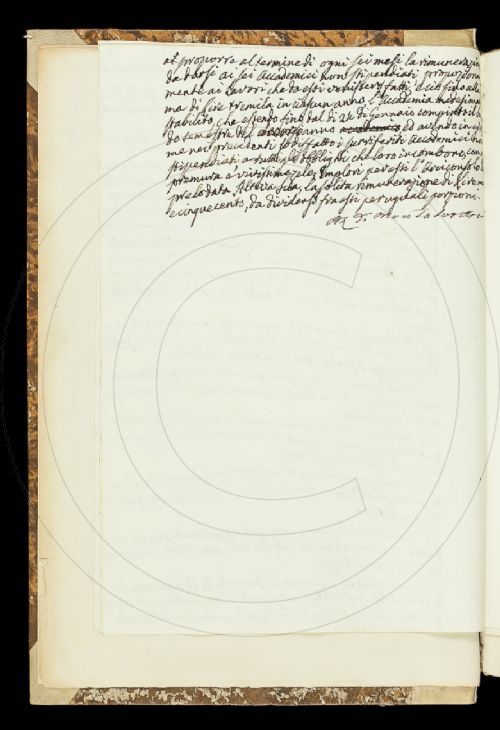 di proporre al termine di ogni sei mesi la rimunerazio
da darsi ai sei Accademici non stipendiati proporziona
mente ai lavori che da essi venissero fatti, e ciò fino alla
ma di lire tremila in ciascun anno, l'Accademia medesima
stabilito, che essendo fino dal dì 24 di Gennaio compito il
do semestre del anno ed avendo in
me nei precedenti soddisfatto i surriferiti Accademici non
stipendiati a tutti gli obblighi che loro incombono, con
premura e vivissimo zelo, implori per essi l'Arciconsolo
prelodata Altezza sua, la solita rimunerazione di lire m
e cinquecento, da dividersi fra essi per uguali porzioni.